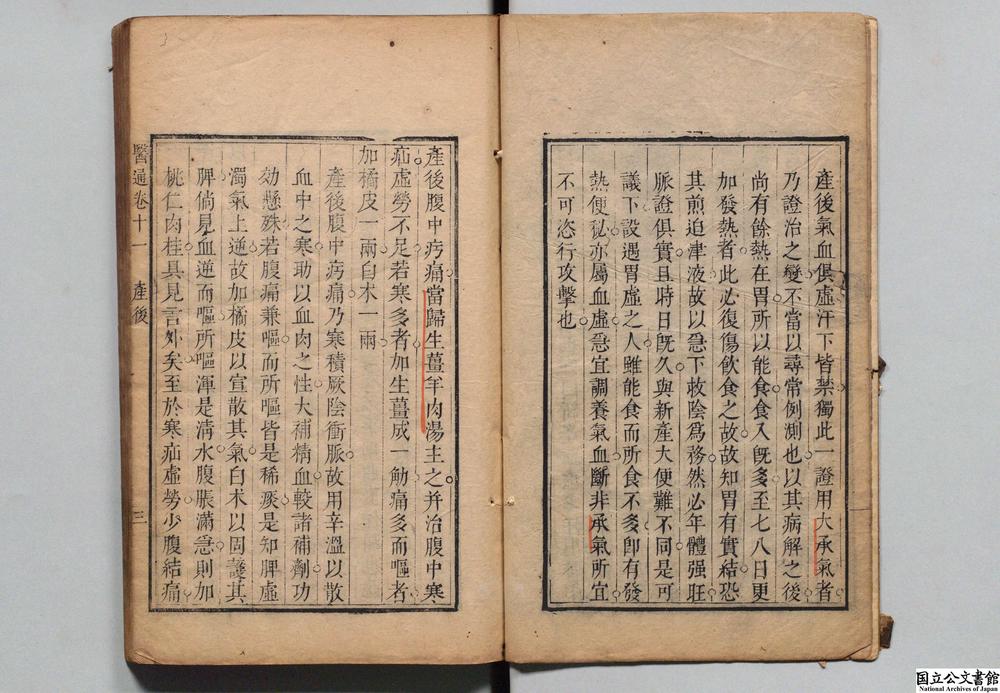 產後氣血俱虛汗下皆禁獨此一證用大承氣者
乃證治之變不當以尋常例測也以其病解之後
尚有餘熱在胃所以能食食入旣多至七八日更
加發熱者此必復傷飲食之故故知胃有實結恐
其煎迫津液故以急下救陰爲務然必年體强旺
脈證俱實且時日旣久與新產大便難不同是可
議下設遇胃虛之人雖能食而所食不多卽有發
熱便秘亦屬血虛急宜調養氣血斷非承氣所宜
不可恣行攻擊也
產後腹中㽲痛當歸生薑羊肉湯主之并治腹中寒
疝虛勞不足若寒多者加生薑成一觔痛多而嘔者
加橘皮二兩白朮一兩
產後腹中㽲痛乃寒積厥陰衝脈故用辛溫以散
血中之寒助以血肉之性大補精血較諸補劑功
効懸殊若腹痛兼嘔而所嘔皆是稀痰是知脾虛
濁氣上逆故加橘皮以宣散其氣白朮以固護其
脾倘見血逆而嘔所嘔渾是淸水腹脹滿急則加
桃仁肉桂具見言外矣至於寒疝虛勞少腹結痛
醫通卷十一 產後 三
国立公文書館
National Archives of Japan